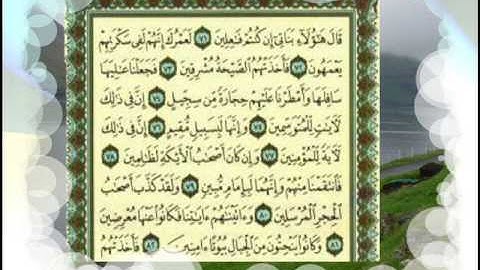 قَالَ هَٰٓؤُلَآءِ بَنَاتِىٓ إِن كُنتُمْ فَٰعِلِينَ ٧١ لَعَمْرُكَ إِنَّهُمْ لَفِى سَكْرَتِهِمْ
يَعْمَهُونَ ٧٢ فَأَخَذَتْهُمُ ٱلصَّيْحَةُ مُشْرِقِينَ ٧٣ فَجَعَلْنَا عَٰلِيَهَا
سَافِلَهَا وَأَمْطَرْنَا عَلَيْهِمْ حِجَارَةً مِّن سِجِّيلٍ ٧٤ إِنَّ فِى ذَٰلِكَ
لَءَايَٰتٍ لِّلْمُتَوَسِّمِينَ ٧٥ وَإِنَّهَا لَبِسَبِيلٍ مُّقِيمٍ ٧٦ إِنَّ فِى ذَٰلِكَ
لَءَايَةً لِّلْمُؤْمِنِينَ ٧٧ وَإِن كَانَ أَصْحَٰبُ ٱلْأَيْكَةِ لَظَٰلِمِينَ ٧٨
فَٱنتَقَمْنَا مِنْهُمْ وَإِنَّهُمَا لَبِإِمَامٍ مُّبِينٍ ٧٩ وَلَقَدْ كَذَّبَ أَصْحَٰبُ
ٱلْحِجْرِ ٱلْمُرْسَلِينَ ٨٠ وَءَاتَيْنَٰهُمْ ءَايَٰتِنَا فَكَانُوا۟ عَنْهَا مُعْرِضِينَ
٨١ وَكَانُوا۟ يَنْحِتُونَ مِنَ ٱلْجِبَالِ بُيُوتًا ءَامِنِينَ ٨٢ فَأَخَذَتْهُمُ